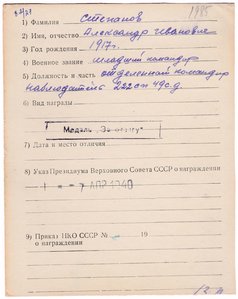 1985
1) Фамилия Степанов
2) Имя, отчество Александр Иванович
3) Год рождения 1917 г.
4) Военное звание младший командир
5) Должность и часть отделенный командир
наблюдателей 222 сп 49 с.д.
6) Вид награды
Медаль „За отвагу“
7) Дата и место отличия
8) Указ Президиума Верховного Совета СССР о награждении
7 АПР 1940
9) Приказ НКО СССР № 19
о награждении